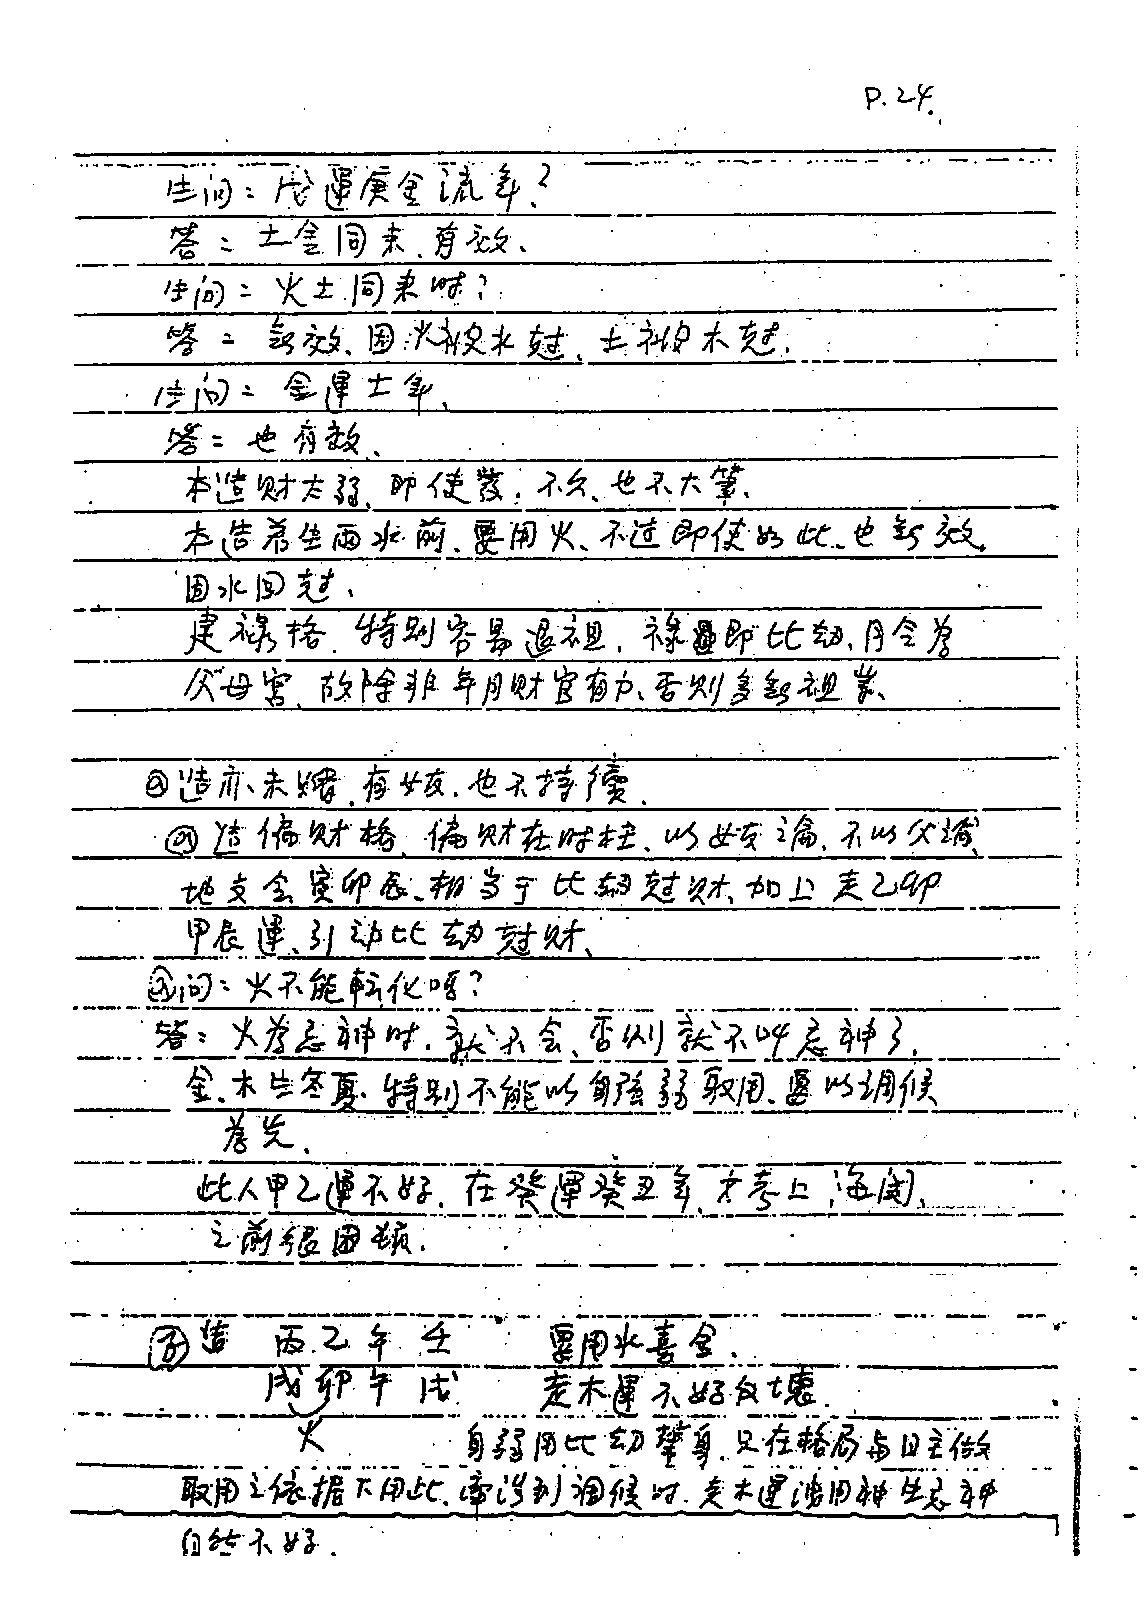 P.24.
生问：戊運庚金流年？
答：土金同来、有效、
生问：火土同来时？
答：無效、因火被水尅、土被木尅、
生问：金運土年、
答：也有效、
本造财太弱、即使發、不久、也不大筆、
本造若生雨水前、要用火、不过即使如此、也無效、
因水回尅、
建禄格、特别容易退祖、禄即比劫、月令為
父母宫、故除非年月财官有力、否则多無祖業、
造亦未婚、有女友、也不持續、
造偏财格、偏财在时柱、以女友論、不以父論、
地支会寅卯辰、相当于比劫尅财、加上走乙卯
甲辰運、引动比劫尅财、
问：火不能転化吗？
答：火為忌神时、就不会、否则就不叫忌神了、
金、木生冬夏、特别不能以身強弱取用、要以调候
為先、
此人甲乙運不好、在癸運癸丑年、才考上海関、
之前很困頓、
造 丙乙午壬 要用水喜金、
戌卯午戌 走木運不好反壊、
火 身弱用比劫幫身、只在格局与日主做
取用之依据下用此、牽涉到调候时、走木運洩用神生忌神
自然不好、